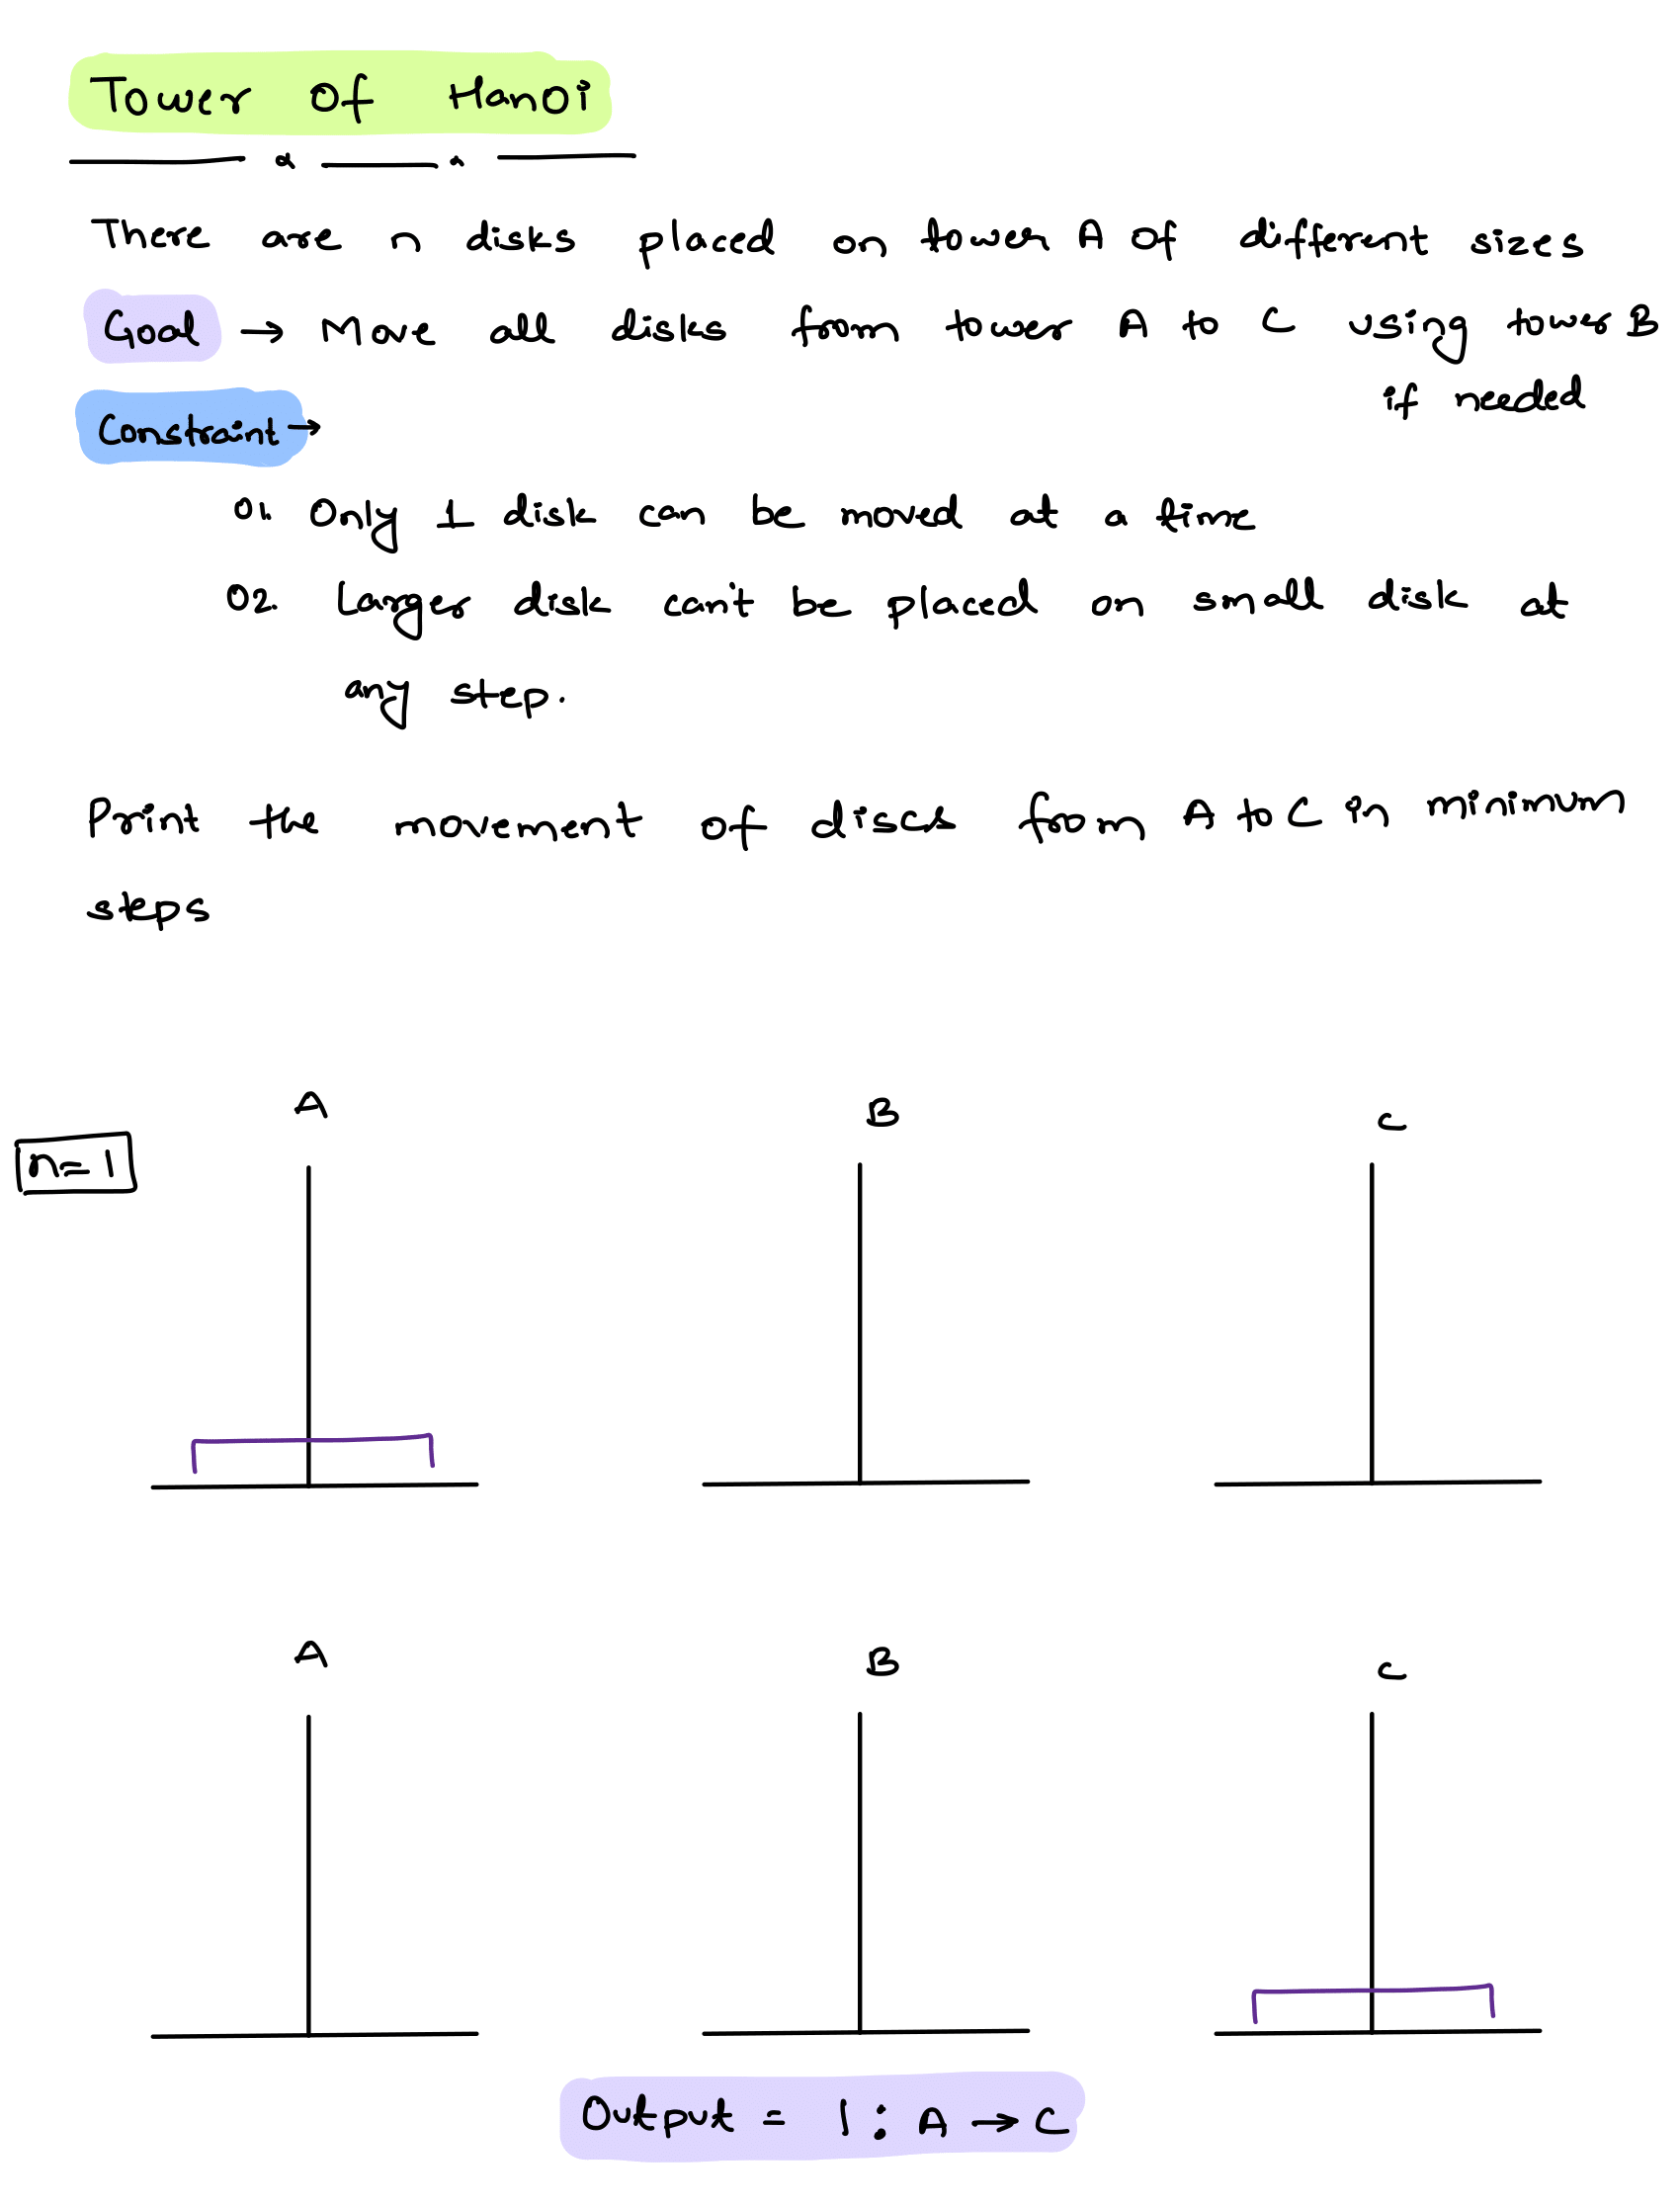 Tower Of Hanoi
There are n disks placed on tower A of different sizes
Goal → Move all disks from tower A to C using tower B
if needed
Constraint →
01. Only 1 disk can be moved at a time
02. Larger disk can't be placed on small disk at
any step.
Print the movement of discs from A to C in minimum
steps
A B C
n=1
A B C
Output = 1 : A → C